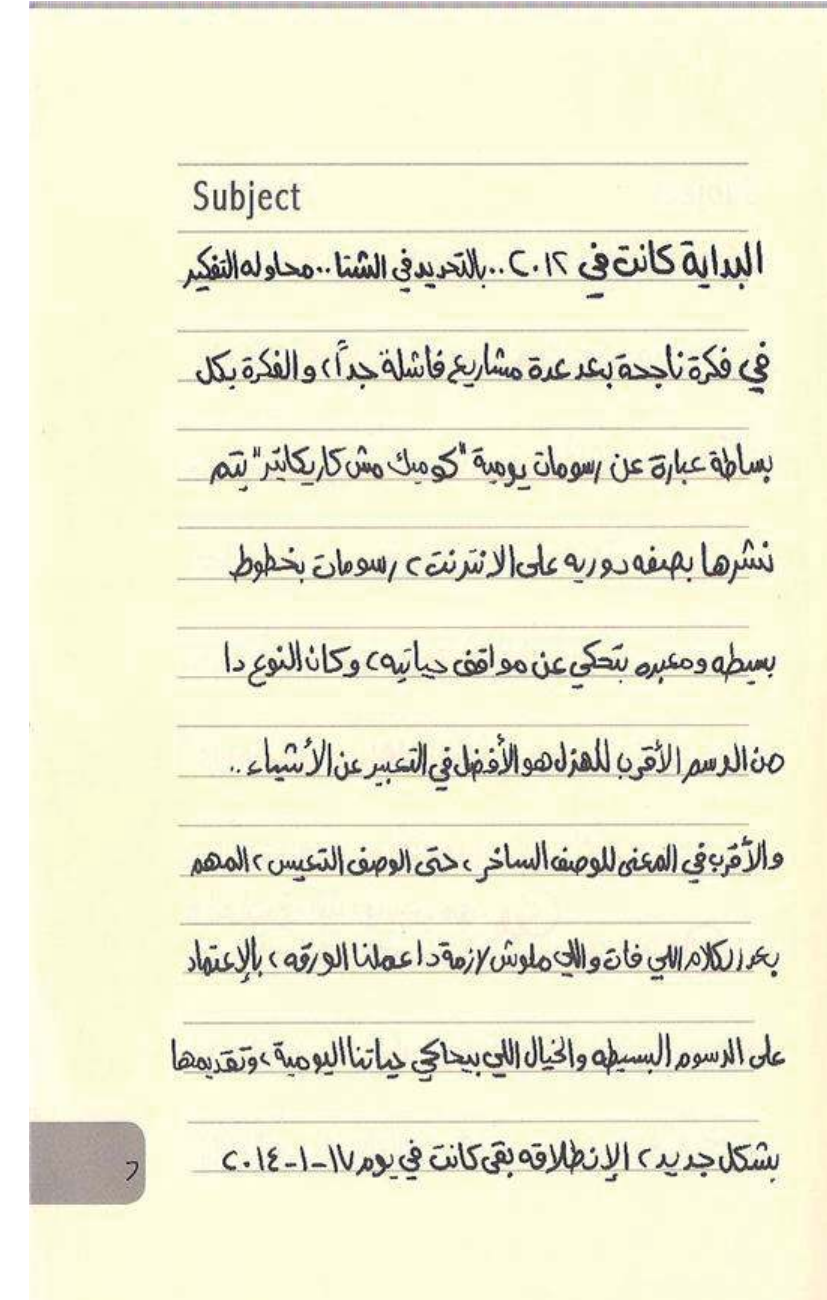 Subject
البداية كانت في ٢٠١٢..بالتحديد في الشتا..محاوله التفكير
في فكرة ناجحة بعد عدة مشاريع فاشلة جداً، والفكرة بكل
بساطة عبارة عن رسومات يومية "كوميك مش كاريكاتير" يتم
نشرها بصفه دوريه على الانترنت، رسومات بخطوط
بسيطه ومعبره بتحكي عن مواقف حياتيه، وكان النوع دا
من الرسم الأقرب للهزل هو الأفضل في التعبير عن الأشياء..
والأقرب في المعنى للوصف الساخر، حتى الوصف التعيس، المهم
بعد الكلام اللي فات واللي ملوش لازمة دا عملنا الورقه، بالإعتماد
على الرسوم البسيطه والخيال اللي بيحاكي حياتنا اليومية، وتقديمها
بشكل جديد، الإنطلاقه بقى كانت في يوم ١٧-١-٢٠١٤
٢